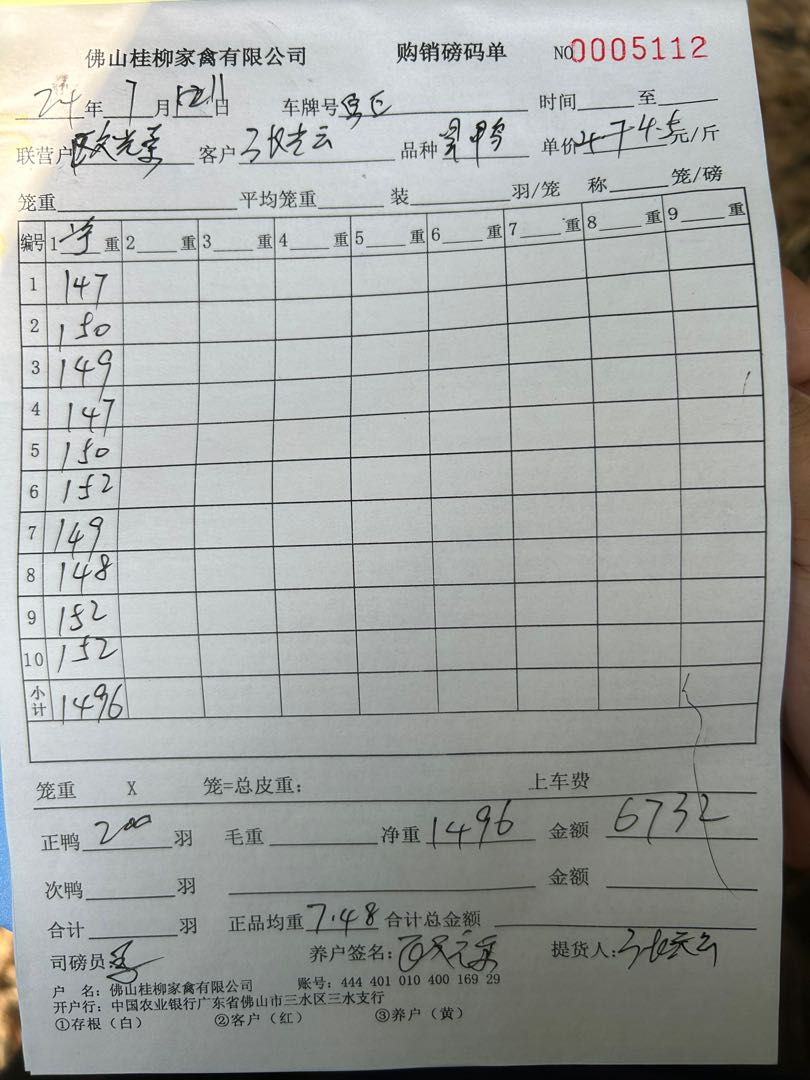 佛山桂柳家禽有限公司 购销磅码单 NO0005112
24年7月 日 车牌号 时间 至
联营户 客户 品种 鸭 单价 4.5元/斤
笼重 平均笼重 装 羽/笼 称 笼/磅
编号 1净重 2 重 3 重 4 重 5 重 6 重 7 重 8 重 9 重
1 147
2 150
3 149
4 147
5 150
6 152
7 149
8 148
9 152
10 152
小计 1496
笼重 X 笼=总皮重： 上车费
正鸭200羽 毛重 净重1496 金额6732
次鸭 羽 金额
合计 羽 正品均重7.48 合计总金额
司磅员： 养户签名： 提货人：
户 名：佛山桂柳家禽有限公司 账号：444 401 010 400 169 29
开户行：中国农业银行广东省佛山市三水区三水支行
①存根（白） ②客户（红） ③养户（黄）